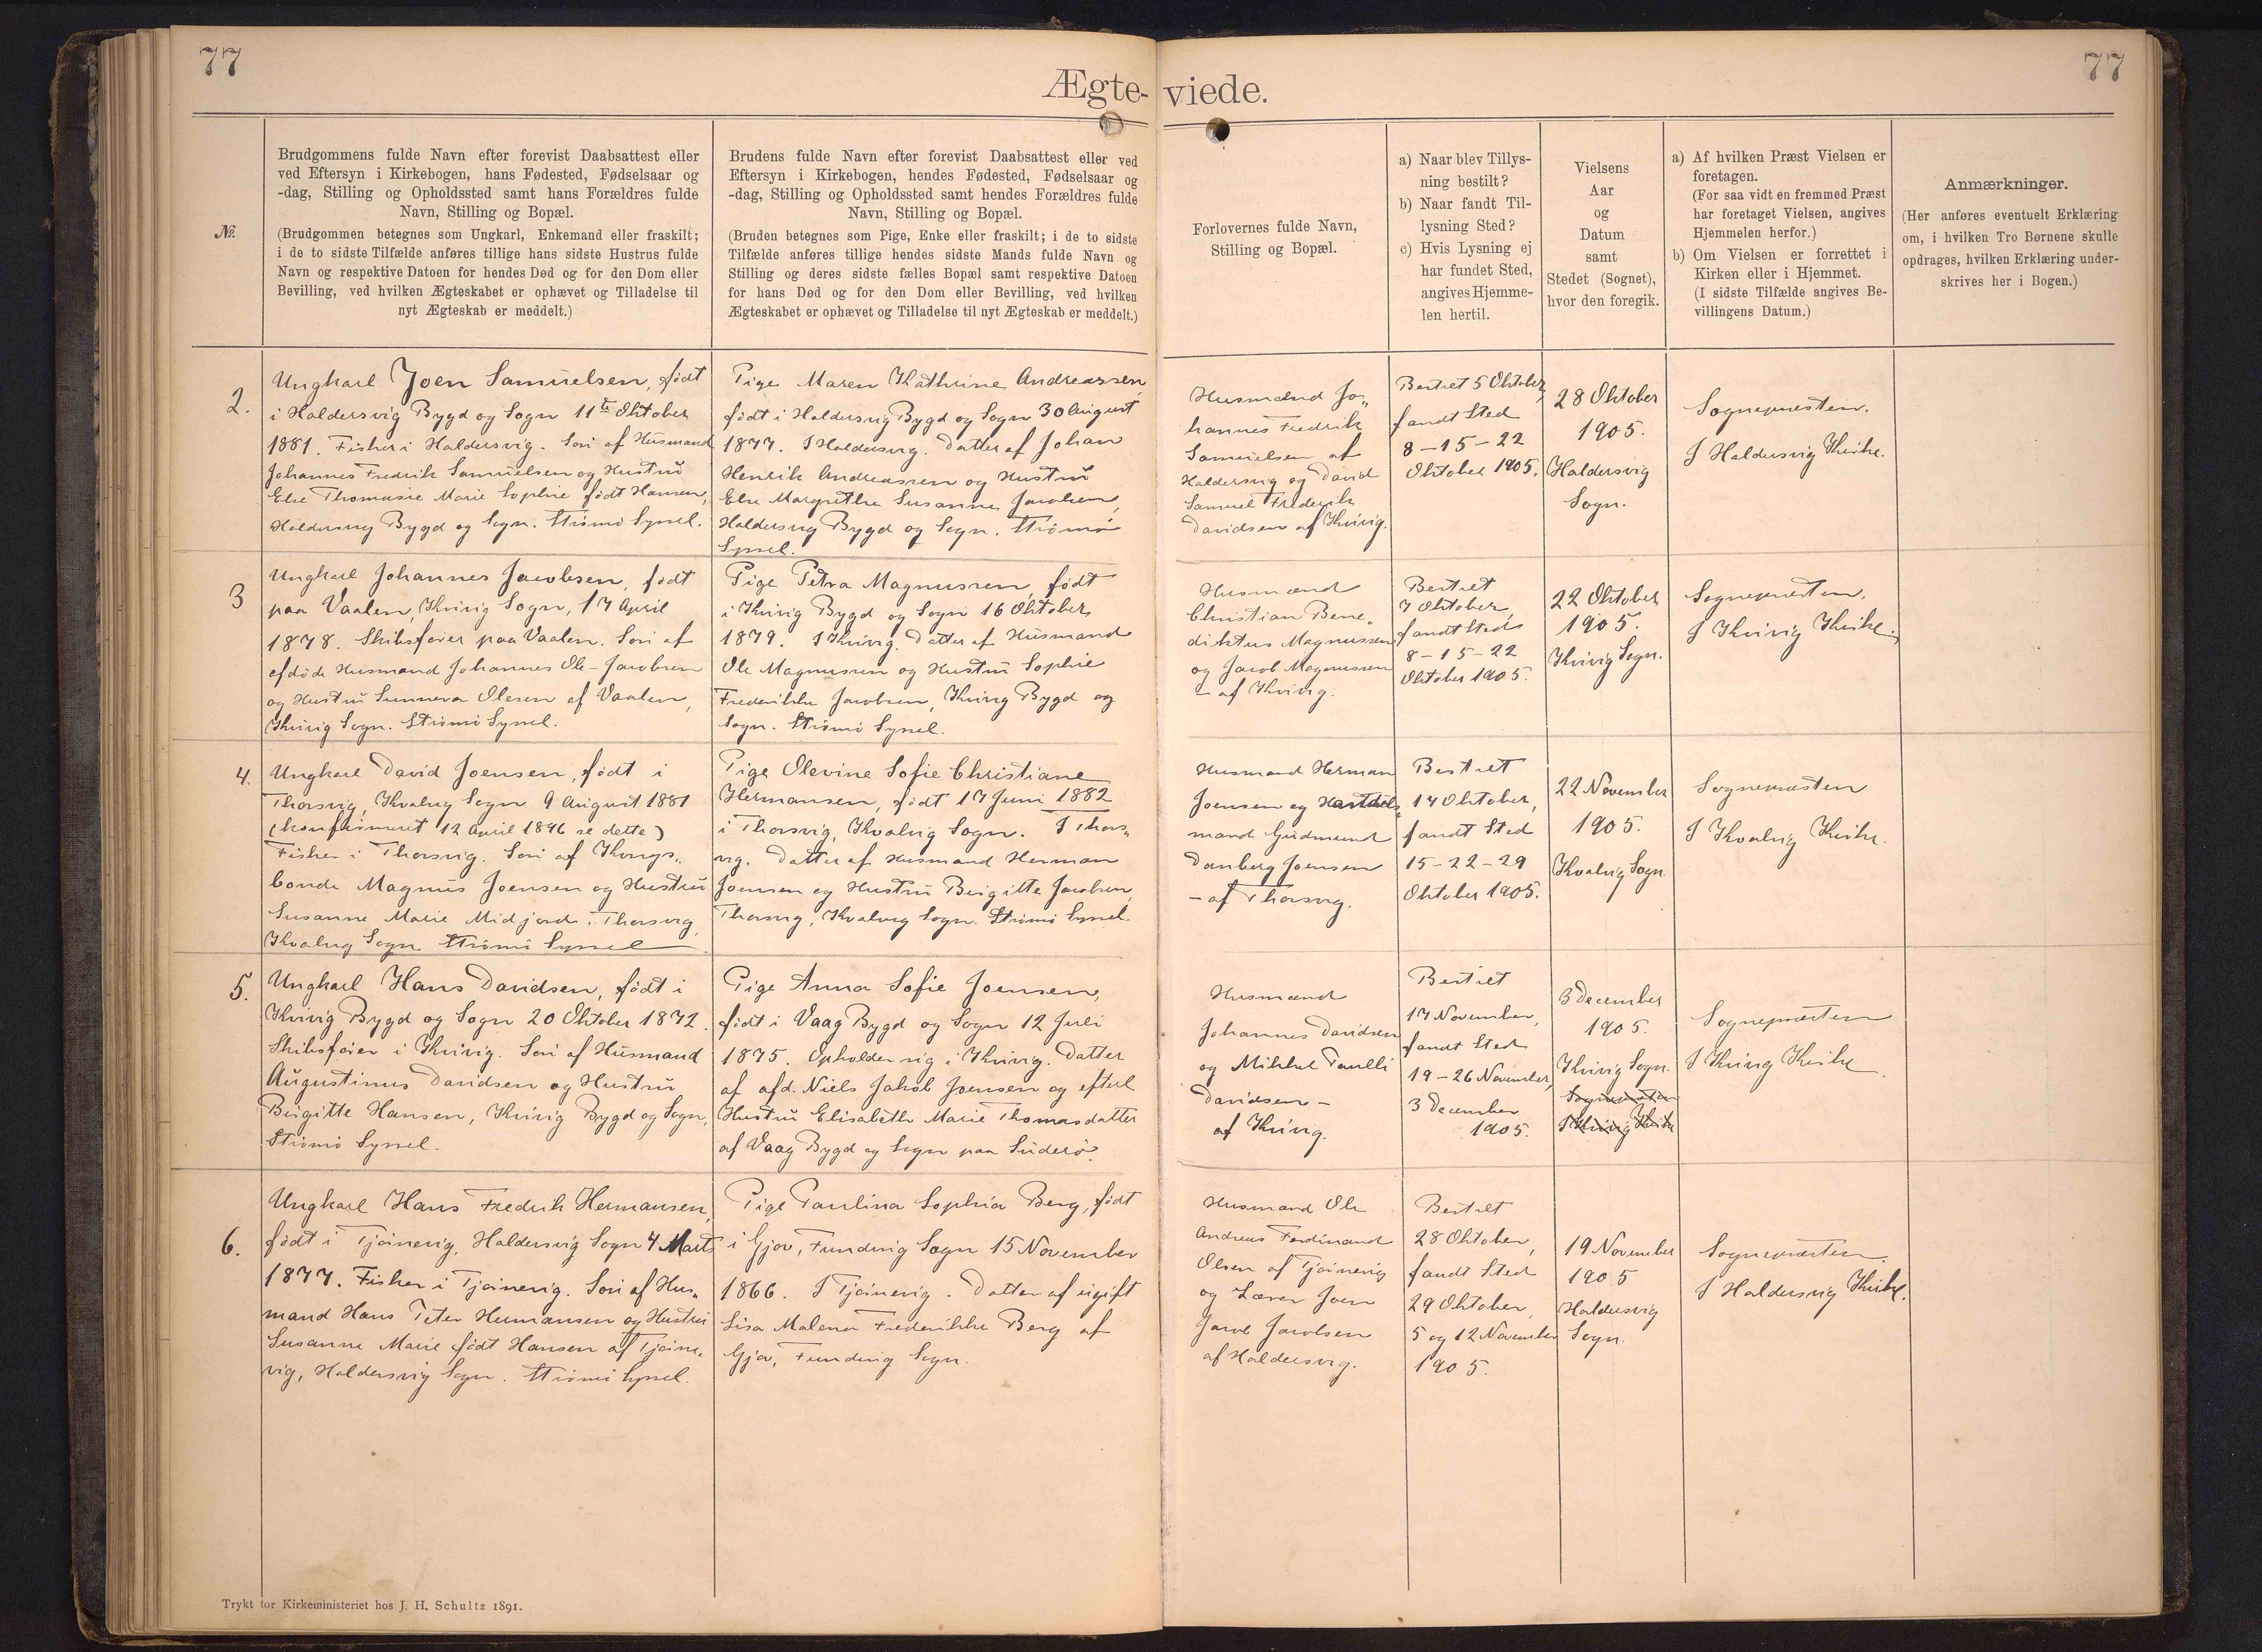 77
77
Ægte-viede.
№.
Brudgommens fulde Navn efter forevist Daabsattest eller
ved Eftersyn i Kirkebogen, hans Fødested, Fødselsaar og
-dag, Stilling og Opholdssted samt hans Forældres fulde
Navn, Stilling og Bopæl.
(Brudgommen betegnes som Ungkarl, Enkemand eller fraskilt;
i de to sidste Tilfælde anføres tillige hans sidste Hustrus fulde
Navn og respektive Datoen for hendes Død og for den Dom eller
Bevilling, ved hvilken Ægteskabet er ophævet og Tilladelse til
nyt Ægteskab er meddelt.)
Brudens fulde Navn efter forevist Daabsattest eller ved
Eftersyn i Kirkebogen, hendes Fødested, Fødselsaar og
-dag, Stilling og Opholdssted samt hendes Forældres fulde
Navn, Stilling og Bopæl.
(Bruden betegnes som Pige, Enke eller fraskilt; i de to sidste
Tilfælde anføres tillige hendes sidste Mands fulde Navn og
Stilling og deres sidste fælles Bopæl samt respektive Datoen
for hans Død og for den Dom eller Bevilling, ved hvilken
Ægteskabet er ophævet og Tilladelse til nyt Ægteskab er meddelt.)
Forlovernes fulde Navn,
Stilling og Bopæl.
a) Naar blev Tillys-
ning bestilt?
b) Naar fandt Til-
lysning Sted?
c) Hvis Lysning ej
har fundet Sted,
angives Hjemme-
len hertil.
Vielsens
Aar
og
Datum
samt
Stedet (Sognet),
hvor den foregik.
a) Af hvilken Præst Vielsen er
foretagen.
(For saa vidt en fremmed Præst
har foretaget Vielsen, angives
Hjemmelen herfor.)
b) Om Vielsen er forrettet i
Kirken eller i Hjemmet.
(I sidste Tilfælde angives Be-
villingens Datum.)
Anmærkninger.
(Her anføres eventuelt Erklæring
om, i hvilken Tro Børnene skulle
opdrages, hvilken Erklæring under-
skrives her i Bogen.)
2.
Ungkarl Joen Samuelsen, født
i Haldersvig Bygd og Sogn 11te Oktober
1881. Fisker i Haldersvig. Søn af Husmand
Johannes Fredrik Samuelsen og Hustru
Else Thomasie Marie Sophie født Hansen,
Haldersvig Bygd og Sogn. Strømø Syssel.
Pige Maren Kathrine Andreassen,
født i Haldersvig Bygd og Sogn 30 August
1877. I Haldersvig. Datter af Johan
Henrik Andreassen og Hustru
Else Margrethe Susanne Jacobsen,
Haldersvig Bygd og Sogn. Strømø
Syssel.
Husmænd Jo„
hannes Fredrik
Samuelsen af
Haldersvig og David
Samuel Frederik
Davidsen af Kvivig.
Bestilt 5 Oktober,
fandt Sted
8-15-22
Oktober 1905.
28 Oktober
1905.
Haldersvig
Sogn.
Sognepræsten.
I Haldersvig Kirke.
3
Ungkarl Johannes Jacobsen, født
paa Vaalen, Kvivig Sogn, 17 April
1878. Skibsfører paa Vaalen. Søn af
afdøde Husmand Johannes Ole-Jacobsen
og Hustru Sunneva Olesen af Vaalen,
Kvivig Sogn. Strømø Syssel.
Pige Petra Magnussen, født
i Kvivig Bygd og Sogn 16 Oktober
1879. I Kvivig. Datter af Husmand
Ole Magnussen og Hustru Sophie
Frederikke Jacobsen, Kvivig Bygd og
Sogn. Strømø Syssel.
Husmænd
Christian Bene„
diktus Magnussen
og Jacob Magnussen
- af Kvivig.
Bestilt
7 Oktober,
fandt Sted
8-15-22
Oktober 1905.
22 Oktober
1905.
Kvivig Sogn.
Sognepræsten.
I Kvivig Kirke.
4.
Ungkarl David Joensen, født i
Thorsvig, Kvalvig Sogn 9 August 1881
(konfirmeret 12 April 1896 se dette)
Fisker i Thorsvig. Søn af Kongs„
bonde Magnus Joensen og Hustru
Susanne Marie Midjord. Thorsvig,
Kvalvig Sogn. Strømø Syssel
Pige Olevine Sofie Christiane
Hermansen, født 17 Juni 1882
i Thorsvig, Kvalvig Sogn. I Thors„
vig. Datter af Husmand Herman
Joensen og Hustru Birgitte Jacobsen,
Thorsvig, Kvalvig Sogn. Strømø Syssel.
Husmand Herman
Joensen og
mand Gudmund
Danberg Joensen
- af Thorsvig.
Bestilt
14 Oktober,
fandt Sted
15-22-29
Oktober 1905.
22 November
1905.
Kvalvig Sogn.
Sognepræsten
I Kvalvig Kirke.
5.
Ungkarl Hans Davidsen, født i
Kvivig Bygd og Sogn 20 Oktober 1872.
Skibsfører i Kvivig. Søn af Husmand
Augustinus Davidsen og Hustru
Birgitte Hansen, Kvivig Bygd og Sogn,
Strømø Syssel.
Pige Anna Sofie Joensen,
født i Vaag Bygd og Sogn 12 Juli
1875. Opholder sig i Kvivig. Datter
af afd. Niels Jakob Joensen og efterl
Hustru Elisabeth Marie Thomasdatter
af Vaag Bygd og Sogn paa Suderø.
Husmænd
Johannes Davidsen
og Mikkel Poulli
Davidsen -
af Kvivig.
Bestilt
17 November,
fandt Sted
19-26 November,
3 December
1905.
3 December
1905.
Kvivig Sogn.
Sognepræsten
I Kvivig Kirke
Sognepræsten
I Kvivig Kirke.
6.
Ungkarl Hans Fredrik Hermansen,
født i Tjørnevig, Haldersvig Sogn 4 Marts
1877. Fisker i Tjørnevig. Søn af Hus„
mand Hans Peter Hermansen og Hustru
Susanne Marie født Hansen af Tjørne„
vig, Haldersvig Sogn. Strømø Syssel.
Pige Paulina Sophia Berg, født
i Gjov, Funding Sogn 15 November
1866. I Tjørnevig. Datter af ugift
Lisa Malena Frederikke Berg af
Gjov, Funding Sogn.
Husmand Ole
Andreas Ferdinand
Olsen af Tjørnevig
og Lærer Joen
Jacob Jacobsen
af Haldersvig.
Bestilt
28 Oktober,
fandt Sted
29 Oktober,
5 og 12 November
1905.
19 November
1905
Haldersvig
Sogn.
Sognepræsten.
I Haldersvig Kirke.
Trykt for Kirkeministeriet hos J. H. Schultz 1891.